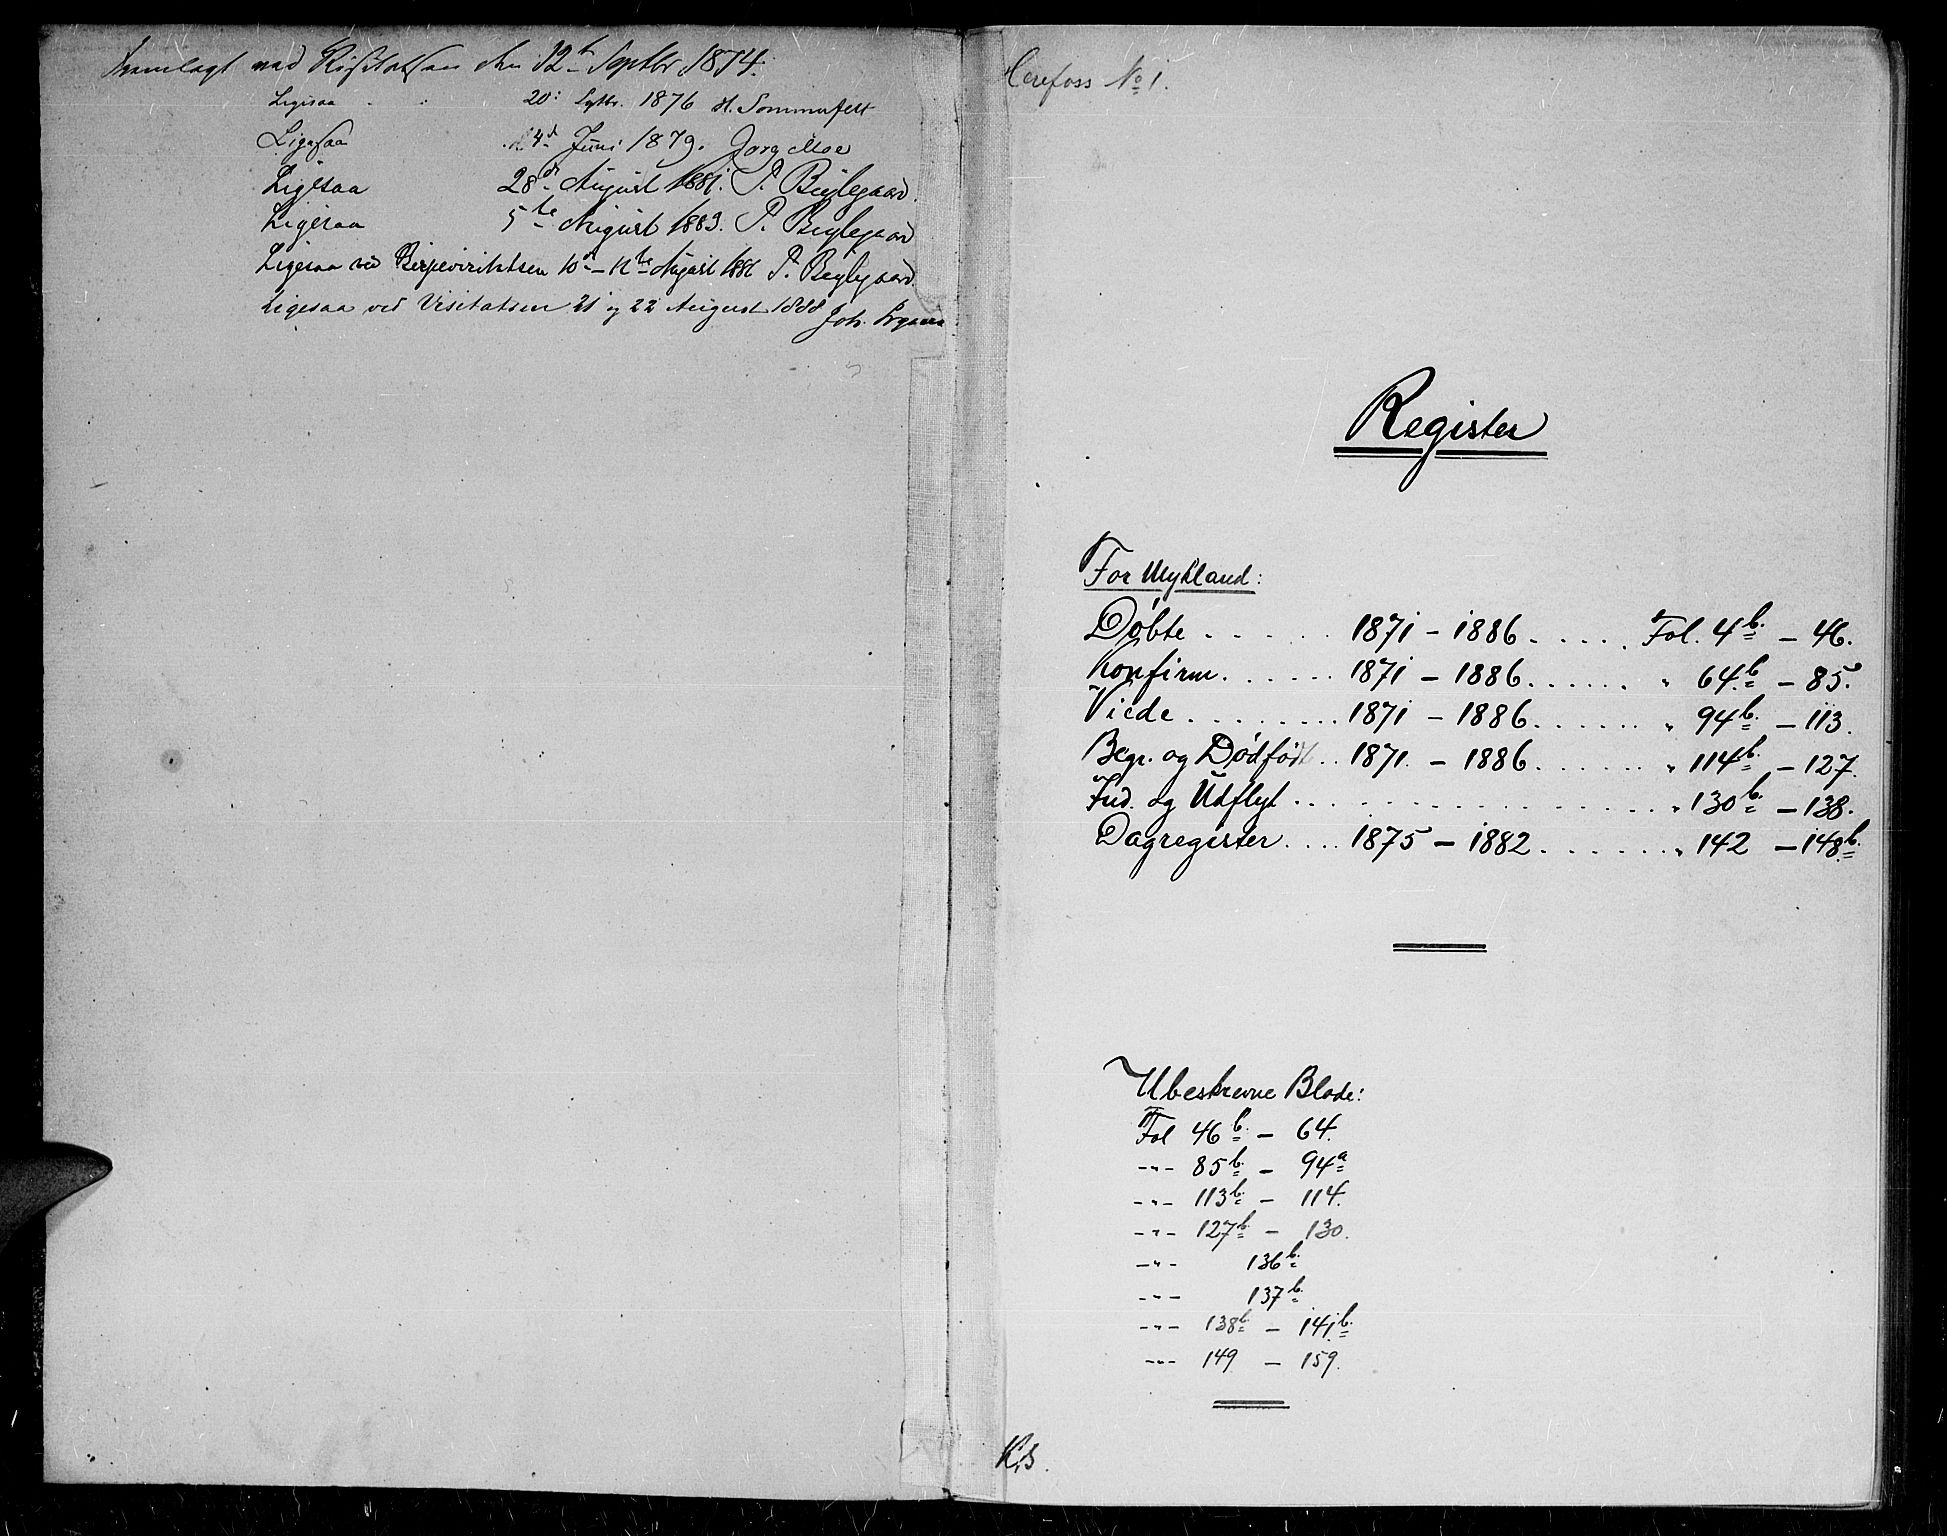 Fremlagt ved Visitatsen den 12te Septbr 1874.
Ligesaa 20: Septbr. 1876 H. Sommerfelt
Ligesaa d. 4de Juni 1879. Jørg Moe
Ligesaa 28de August 1881. P. Bøylegaard.
Ligesaa 5te August 1883. P. Bøylegaard
Ligesaa ved Bispevisitatsen 10de - 11te August 1886 P. Bøylegaard
Ligesaa ved Visitatsen 21 og 22 August 1888 Joh.
Herefoss No 1.
Register
For Mykland:
Døbte . . . . . 1871 - 1886 . . . . . Fol. 4b. - 46.
Konfirm. . . . . . 1871 - 1886. . . . . . " 64b. - 85.
Viede . . . . . . . . 1871 - 1886. . . . . . " 94b. - 113.
Begr. og Dødfødt . . 1871. - 1886. . . . . . " 114b. - 127.
Ind. og Udflyt . . . . . . . . . . . . . . . " 130b. - 138.
Dagregister. . . . 1875 - 1882 . . . . . . " 142 - 148b.
Ubeskrevne Blade:
Fol 46b. - 64.
-"- 85b. - 94a
-"- 113b. - 114.
-"- 127b. - 130.
-"- 136b.
-"- 137b.
-"- 138b. - 141b.
-"- 149 - 159.
K.B.